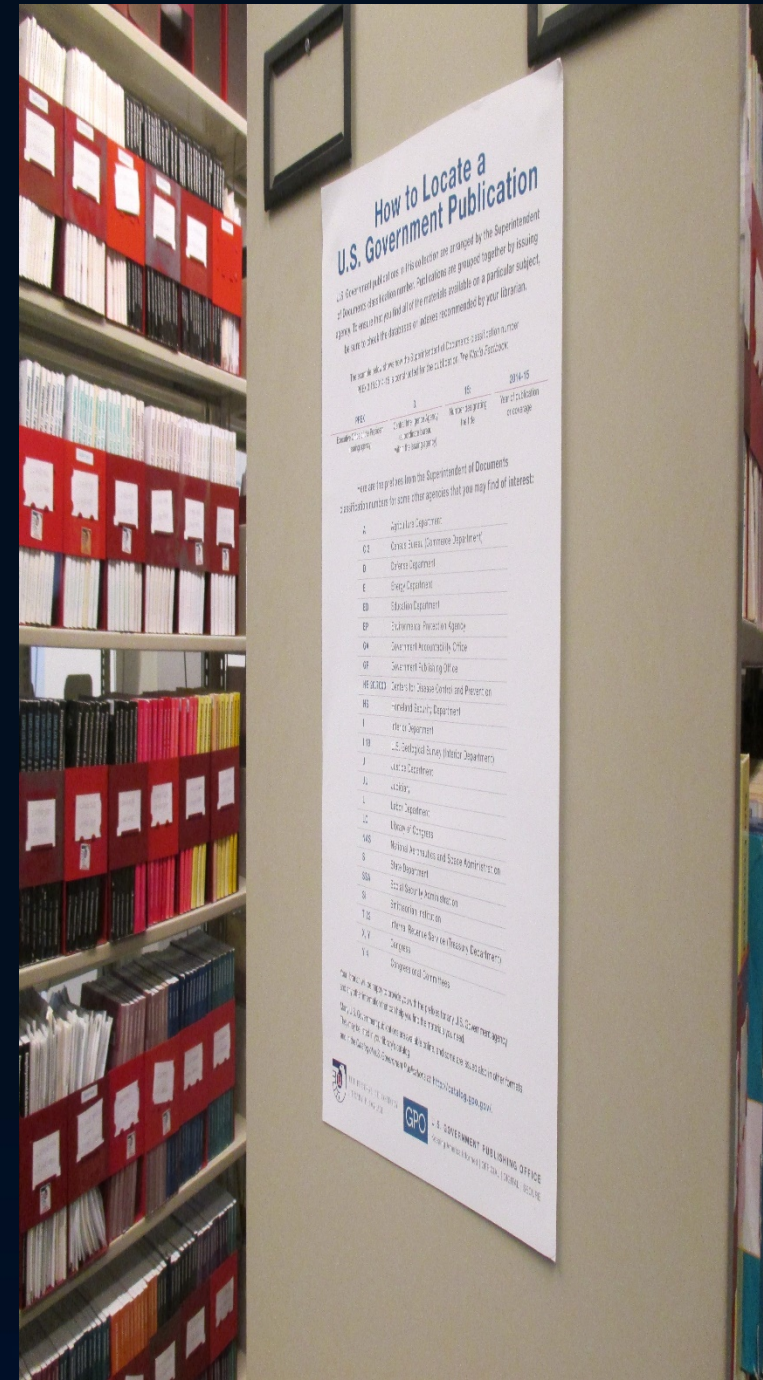 How to Locate a
U.S. Government Publication
U.S. Government publications in this collection are arranged by the Superintendent
of Documents classification number. Publications are grouped together by issuing
agency. To ensure that you find all of the materials available on a particular subject,
be sure to check the databases or indexes recommended by your librarian.
The example below shows how the Superintendent of Documents classification number
is constructed for the publication, The World Factbook.
PREX
3
15:
2014-15
Number designating
the title
Year of publication
or coverage
Here are the prefixes from the Superintendent of Documents
classification numbers for some other agencies that you may find of interest:
A Agriculture Department
C 3 Census Bureau (Commerce Department)
D Defense Department
E Energy Department
ED Education Department
EP Environmental Protection Agency
GA Government Accountability Office
GP Government Publishing Office
Centers for Disease Control and Prevention
HS Homeland Security Department
I Interior Department
I 19 U.S. Geological Survey (Interior Department)
J Justice Department
JU Judiciary
L Labor Department
LC Library of Congress
NAS National Aeronautics and Space Administration
S State Department
SSA Social Security Administration
SI Smithsonian Institution
T 22 Internal Revenue Service (Treasury Department)
X, Y Congress
Y 4 Congressional Committees
Many U.S. Government publications are available online and some are issued also in other formats.
http://catalog.gpo.gov
GPO
U.S. GOVERNMENT PUBLISHING OFFICE
Keeping America Informed | OFFICIAL | DIGITAL | SECURE